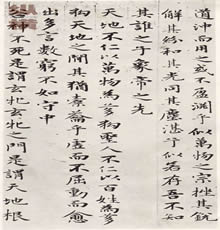 道沖而用之或不盈淵乎似萬物之宗挫其銳
解其紛和其光同其塵湛乎似若存吾不知
其誰之子象帝之先
天地不仁以萬物為芻狗聖人不仁以百姓為芻
狗天地之間其猶橐籥乎虛而不屈動而愈
出多言數窮不如守中
神不死是謂玄牝玄牝之門是謂天地根